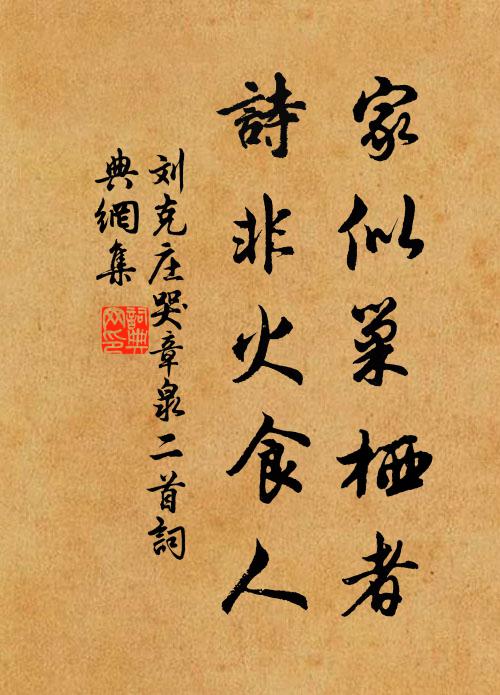 家似巢栖者
詩非火食人
刘克庄哭章泉二首詞
典網集
詞典網印